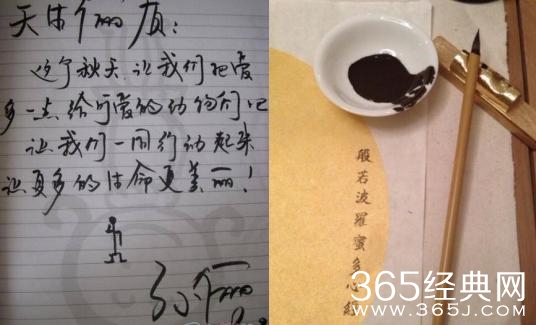 天生俪质:
这个秋天,让我们把爱
多一点给可爱的动物们吧
让我们一同行动起来
让更多的生命更美丽!
孙俪
般若波羅蜜多心經
365经典网
WWW.365J.COM